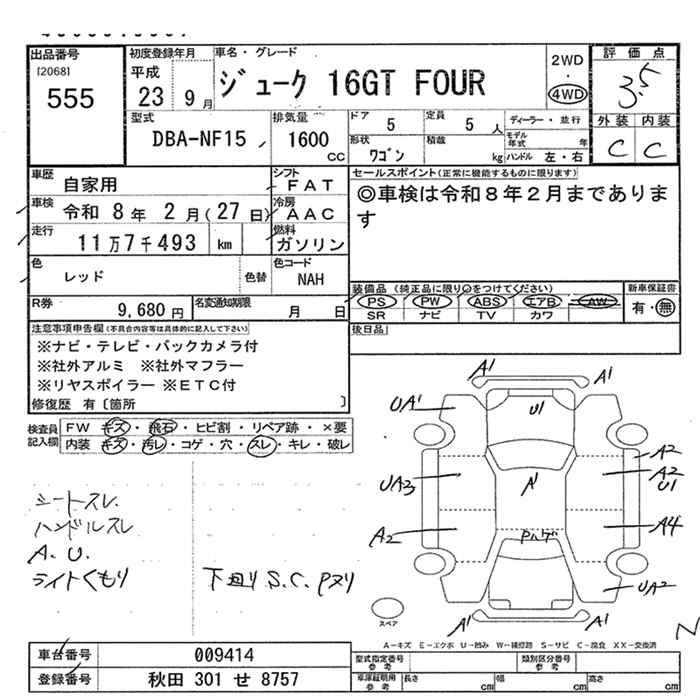 出品番号
[2068]
555
初度登録年月
平成
23 9月
車名・グレード
ジューク 16GT FOUR
2WD
・
4WD
評価点
3.5
外装 内装
C C
型式
DBA-NF15
排気量
1600
CC
ドア 5
定員 5 人
形状 ワゴン
積載 kg
ディーラー・並行
モデル年式 年
ハンドル 左・右
車歴 自家用
シフト FAT
車検 令和 8年 2月(27日)
冷房 AAC
走行 11万7千493 km
燃料 ガソリン
色 レッド
色替
色コード NAH
R券 9,680円
名変通知期限 月 日
セールスポイント(正常に機能するものに限ります)
◎車検は令和8年2月まであります
装備品(純正品に限り○をつけてください)
PS PW ABS エアB AW
SR ナビ TV カワ
新車保証書
有・無
後日品
注意事項申告欄(不具合内容等は具体的に記入して下さい)
※ナビ・テレビ・バックカメラ付
※社外アルミ ※社外マフラー
※リヤスポイラー ※ETC付
修復歴 有〔箇所 〕
検査員記入欄
FW キズ・飛石・ヒビ割・リペア跡・×要
内装 キズ・汚レ・コゲ・穴・スレ・キレ・破レ
シートスレ.
ハンドルスレ
A. U.
ライトくもり
下廻り S.C. Pヌリ
A1 A1
UA1
U1
A2
UA3
A1
A2
U1
A2
Pハゲ
A4
UA2
A1 A1
スペア
N
A-キズ E-エクボ U-凹み W-補修跡 S-サビ C-腐食 XX-交換済
車台番号 009414
登録番号 秋田 301 せ 8757
型式指定番号 参考
類別区分番号 参考
車庫証明用 参考
長さ cm
幅 cm
高さ cm